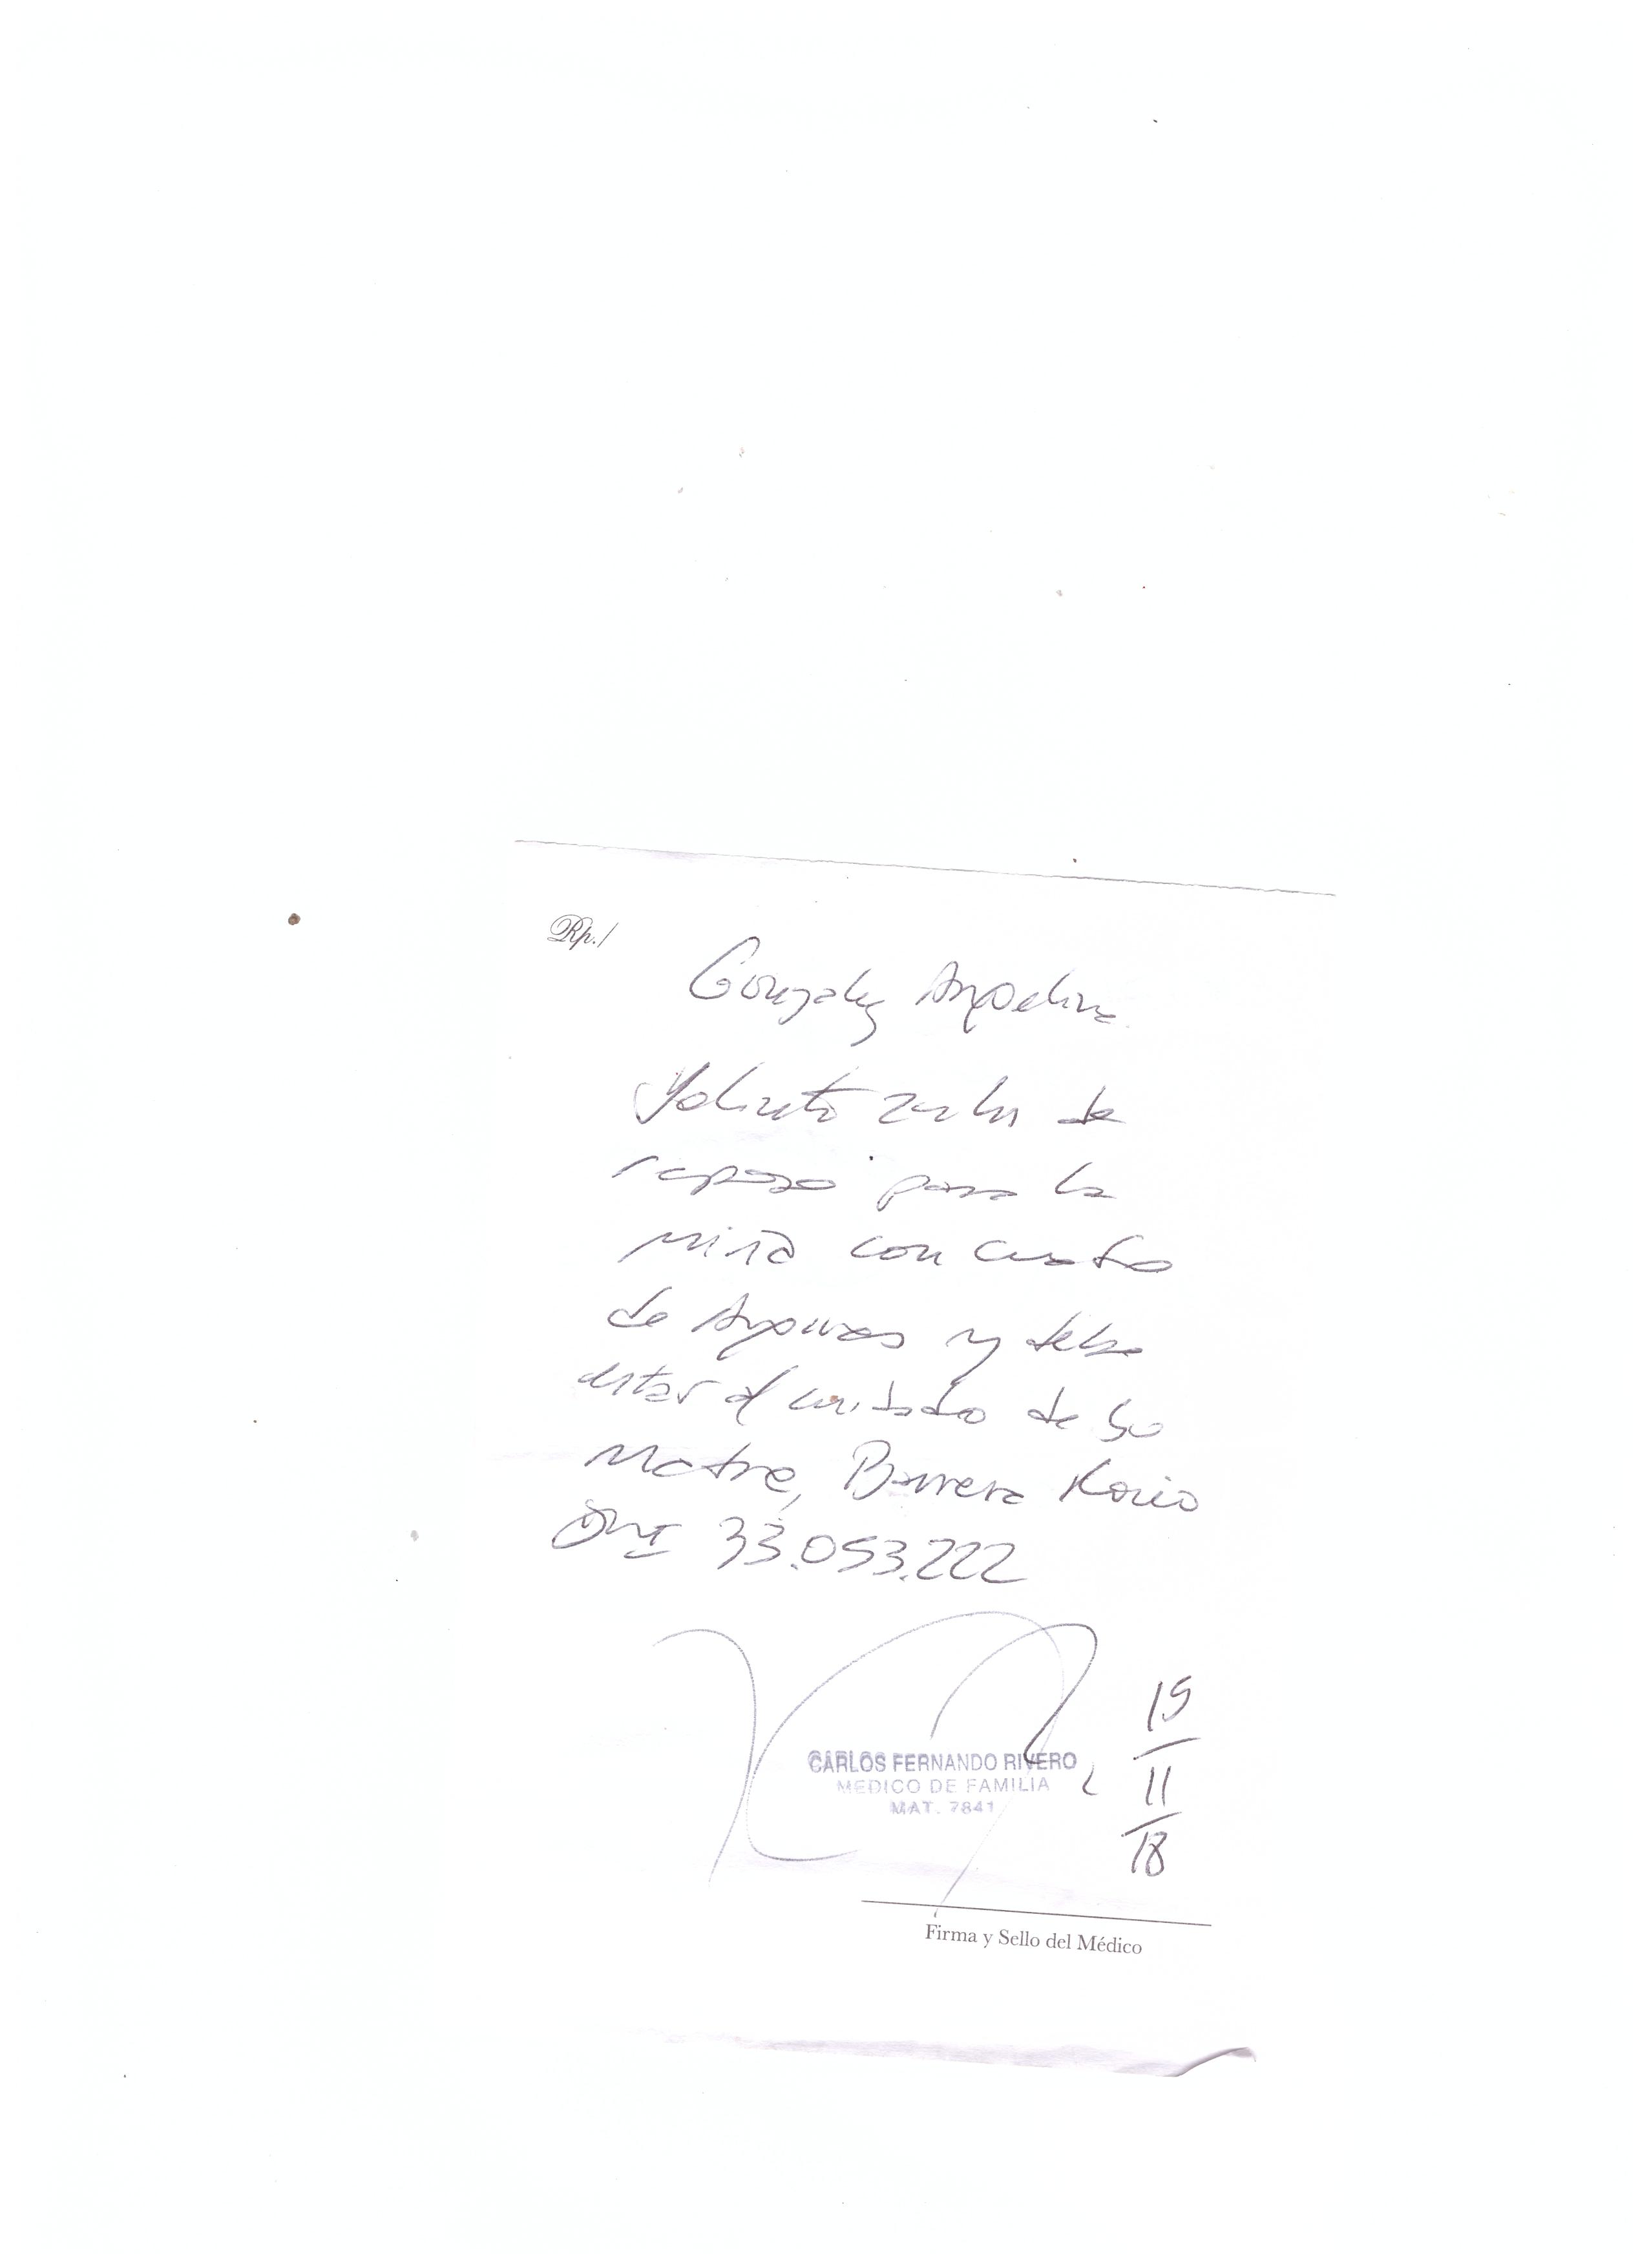 Rp./
Gonzalez Angelina
Solicito 24 hs de
reposo para la
niña con cuadro
de Anginas y debe
estar al cuidado de su
Madre, Barrera Rocio
DNI 33.053.222
CARLOS FERNANDO RIVERO
MEDICO DE FAMILIA
MAT. 7841
15
11
18
Firma y Sello del Médico